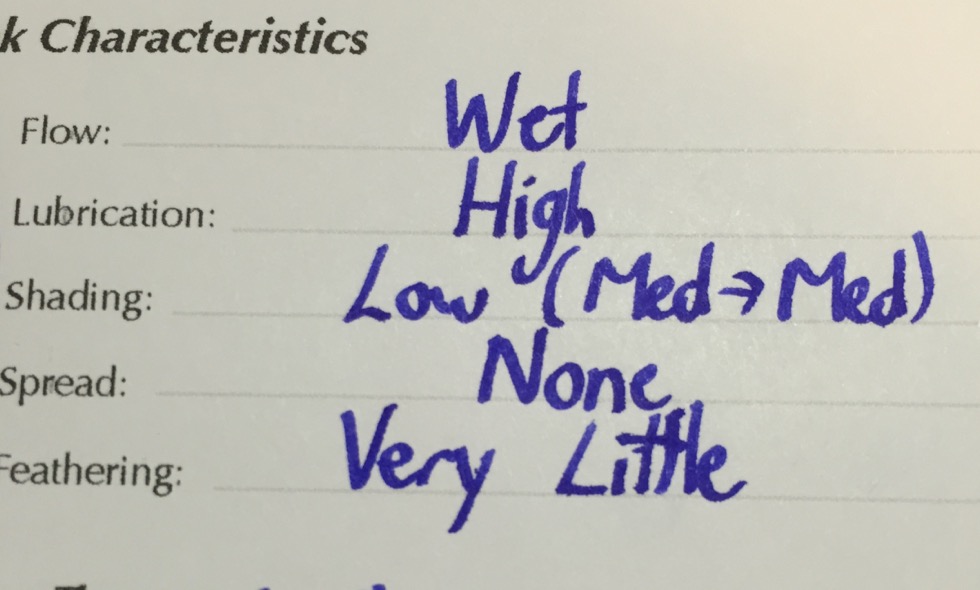 k Characteristics
Flow: Wet
Lubrication: High
Shading: Low (Med→Med)
Spread: None
Feathering: Very Little